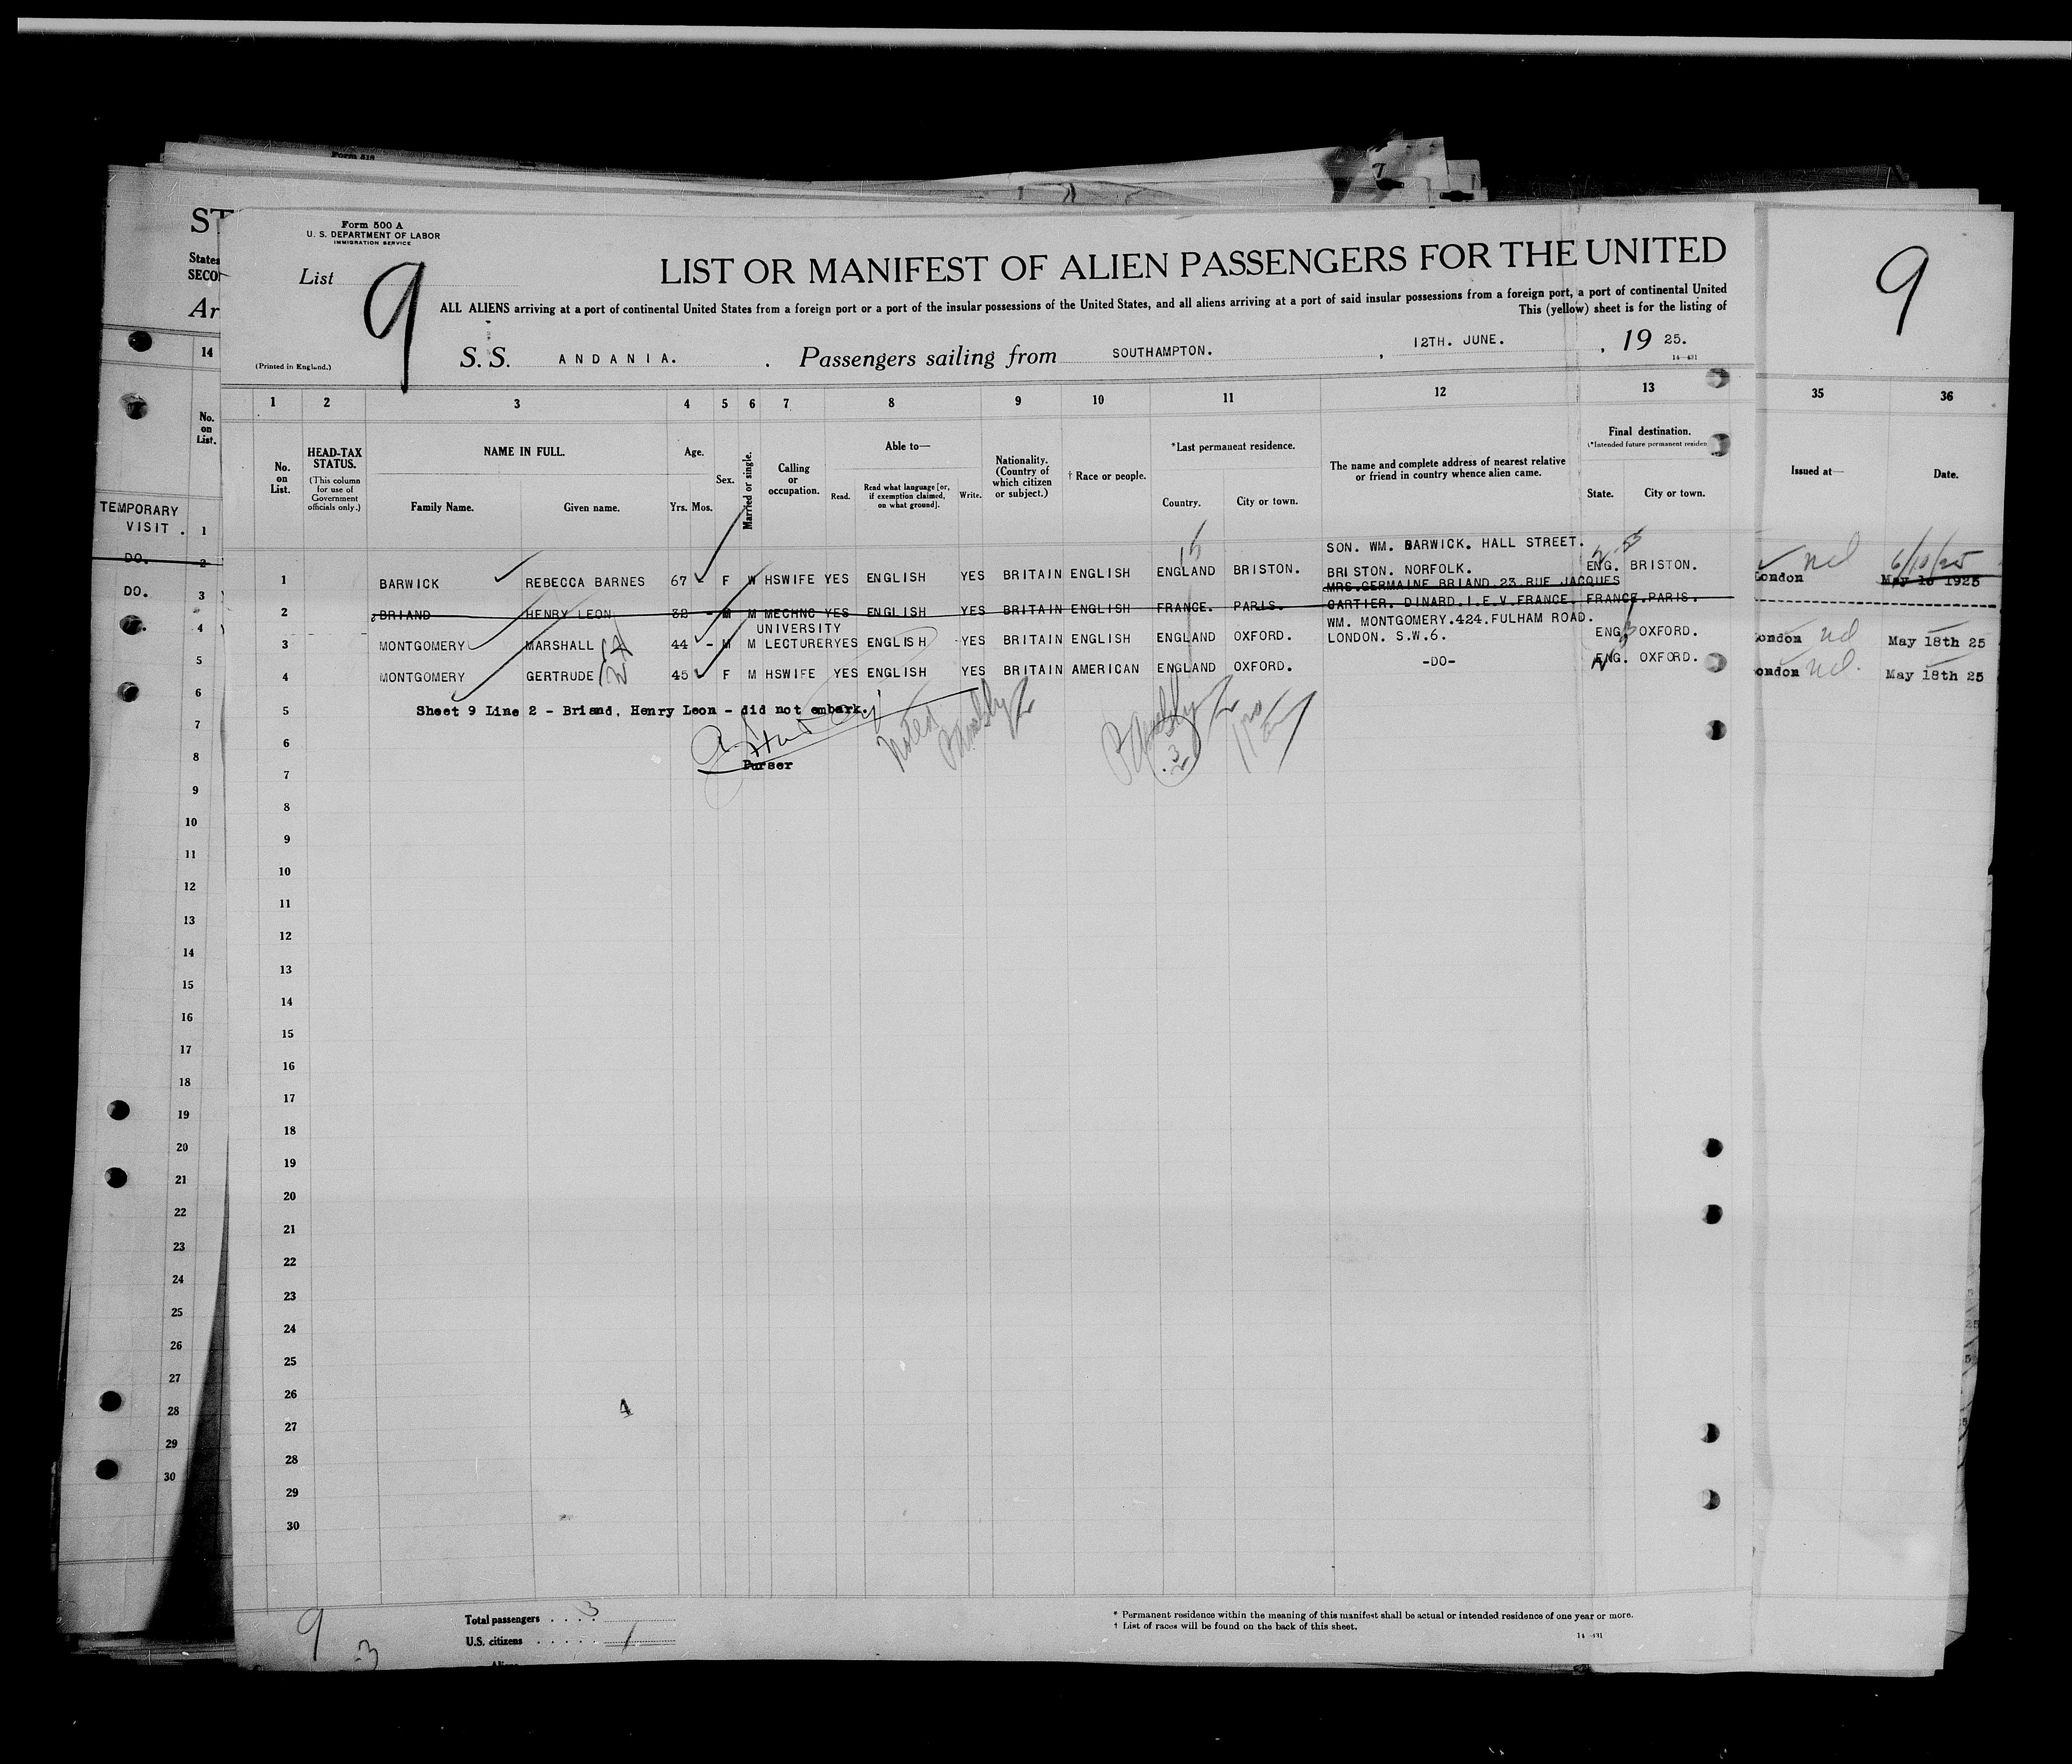 Form 500 A
U. S. DEPARTMENT OF LABOR
IMMIGRATION SERVICE
List 9
LIST OR MANIFEST OF ALIEN PASSENGERS FOR THE UNITED
9
ALL ALIENS arriving at a port of continental United States from a foreign port or a port of the insular possessions of the United States, and all aliens arriving at a port of said insular possessions from a foreign port, a port of continental United
This (yellow) sheet is for the listing of
(Printed in England.)
S. S. ANDANIA. . Passengers sailing from SOUTHAMPTON. , 12TH. JUNE. , 19 25.
14—431
ST
States
SECO
Ar
14
No. on List.
TEMPORARY
VISIT .
DO.
DO.
1 2 3 4 5 6 7 8 9 10 11 12 13 35 36
No. on List.
HEAD-TAX STATUS.
(This column for use of Government officials only.)
NAME IN FULL.
Family Name. Given name.
Age.
Yrs. Mos.
Sex.
Married or single.
Calling or occupation.
Able to—
Read. Read what language [or, if exemption claimed, on what ground]. Write.
Nationality. (Country of which citizen or subject.)
† Race or people.
*Last permanent residence.
Country. City or town.
The name and complete address of nearest relative or friend in country whence alien came.
Final destination.
(*Intended future permanent residen
State. City or town.
Issued at—
Date.
SON. WM. BARWICK. HALL STREET.
1 BARWICK REBECCA BARNES 67 - F W HSWIFE YES ENGLISH YES BRITAIN ENGLISH ENGLAND BRISTON. BRISTON. NORFOLK. ENG. BRISTON. London May 18 1925 6/10/25
MRS.GERMAINE BRIAND.23.RUE JACQUES
2 BRIAND HENRY LEON 32 - M M MECHNC YES ENGLISH YES BRITAIN ENGLISH FRANCE. PARIS. CARTIER. DINARD.I.E.V.FRANCE. FRANCE.PARIS.
UNIVERSITY WM. MONTGOMERY.424.FULHAM ROAD.
3 MONTGOMERY MARSHALL 44 - M M LECTURER YES ENGLISH YES BRITAIN ENGLISH ENGLAND OXFORD. LONDON. S.W.6. ENG. OXFORD. London May 18th 25
4 MONTGOMERY GERTRUDE 45 F M HSWIFE YES ENGLISH YES BRITAIN AMERICAN ENGLAND OXFORD. -DO- ENG. OXFORD. ondon May 18th 25
5 Sheet 9 Line 2 - Briand, Henry Leon - did not embark.
6
Purser
7
8
9
10
11
12
13
14
15
16
17
18
19
20
21
22
23
24
25
26
27
28
29
30
4
Total passengers . . . . 3
U.S. citizens . . . . . .
9
3
* Permanent residence within the meaning of this manifest shall be actual or intended residence of one year or more.
† List of races will be found on the back of this sheet.
14—431